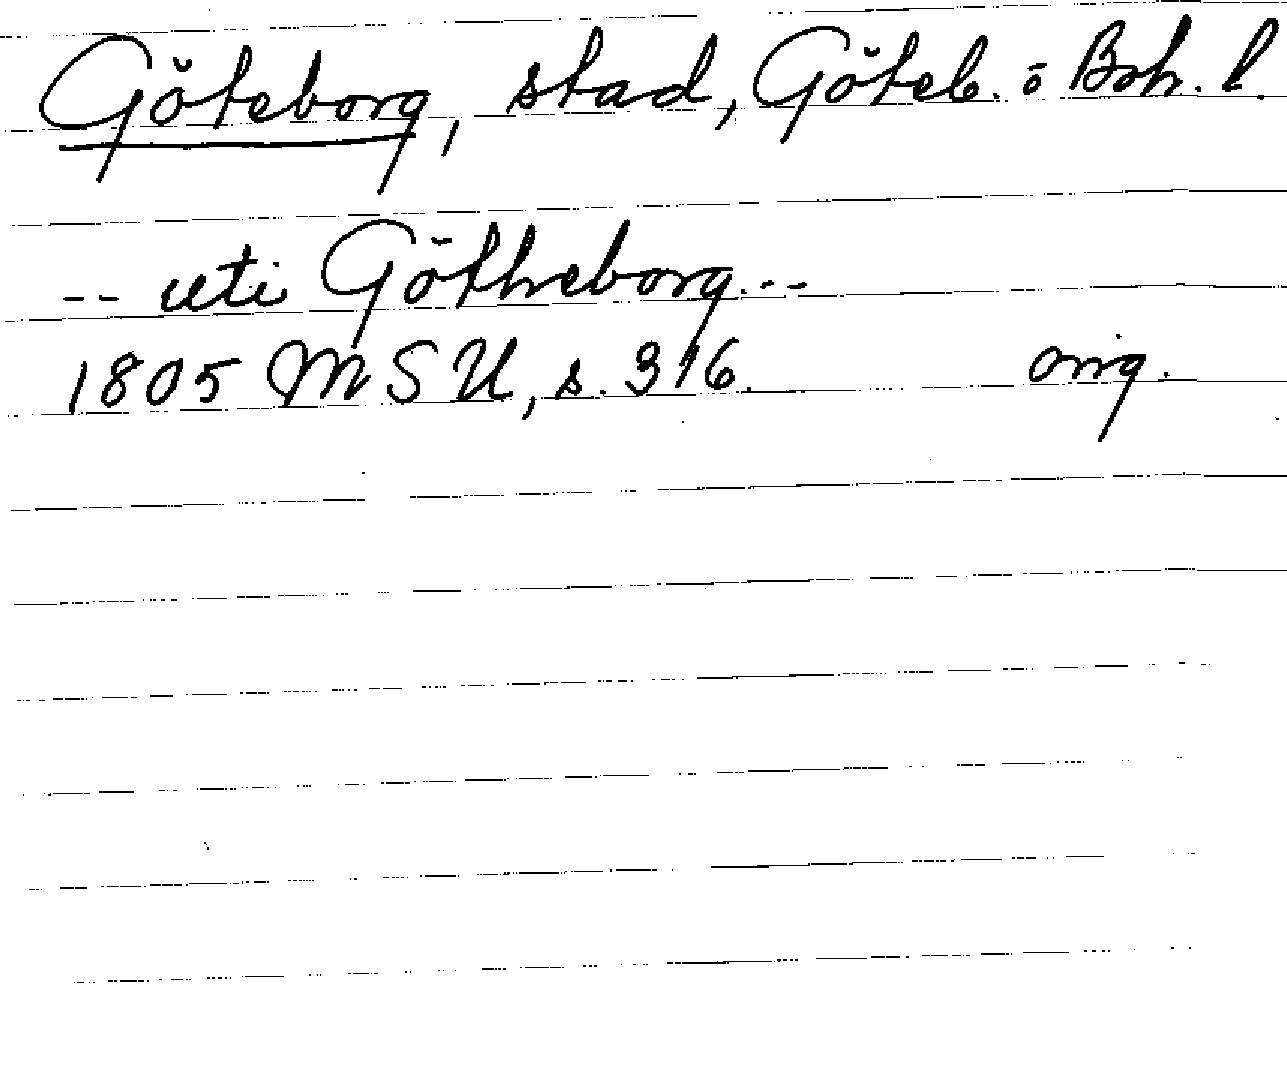 Göteborg, stad, Göteb. o Boh. l.
-- uti Götheborg...--
1805 MSU, s. 316. orig.